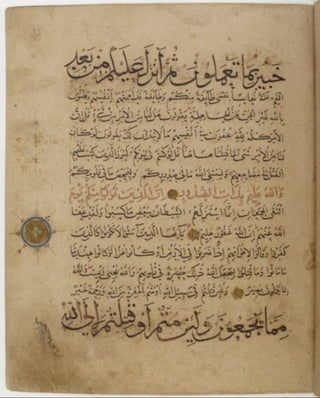 خبير بما تعملون ثم أنزل عليكم من بعد
الغم أمنة نعاسا يغشى طائفة منكم وطائفة قد أهمتهم أنفسهم يظنون
بالله غير الحق ظن الجاهلية يقولون هل لنا من الأمر من شيء قل إن
الأمر كله لله يخفون في أنفسهم ما لا يبدون لك يقولون لو كان
لنا من الأمر شيء ما قتلنا هاهنا قل لو كنتم في بيوتكم لبرز الذين كتب عليهم
القتل إلى مضاجعهم وليبتلي الله ما في صدوركم وليمحص ما في قلوبكم
والله عليم بذات الصدور إن الذين تولوا منكم يوم
التقى الجمعان إنما استزلهم الشيطان ببعض ما كسبوا ولقد عفا
الله عنهم إن الله غفور حليم يا أيها الذين آمنوا لا تكونوا كالذين
كفروا وقالوا لإخوانهم إذا ضربوا في الأرض أو كانوا غزى لو كانوا عندنا
ما ماتوا وما قتلوا ليجعل الله ذلك حسرة في قلوبهم والله يحيي ويميت والله
بما تعملون بصير ولئن قتلتم في سبيل الله أو متم لمغفرة من الله ورحمة خير
مما يجمعون ولئن متم أو قتلتم لإلى الله